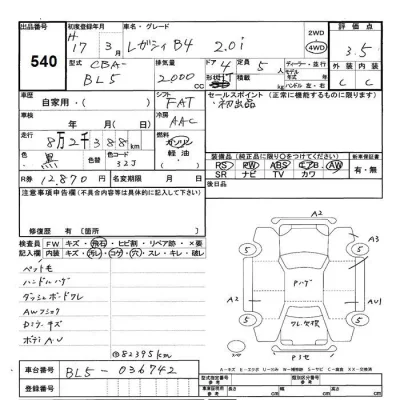 出品番号
540
初度登録年月
H
17年 3月
車名・グレード
レガシィ B4 2.0i
2WD
4WD
評価点
3.5
外装 内装
C C
型式
CBA-
BL5
排気量
2000 cc
ドア 4
形状
定員 5 人
積載 kg
ディーラー・並行
モデル 年
ハンドル 左・右
車歴
自家用・( )
シフト
FAT
セールスポイント(正常に機能するものに限ります)
初出品
車検
年 月(日)
冷房
AAC
走行
8万2千388 km
燃料
ガソリン
軽油
色
黒
色替
色コード
32J
R券
12,870 円
名変期限 月 日
装備品(純正品に限り○をつけてください)
PS PW ABS エアB AW
SR ナビ TV カワ
新車保証書
有・無
注意事項申告欄(不具合などは具体的に記入して下さい)
後日品
修復歴 有(箇所 )
検査員
記入欄
FW キズ・飛石・ヒビ割・リペア跡・×要
内装 キズ・汚レ・コゲ・穴・スレ・キレ・破レ
ペット毛
ハンドルハゲ
ダッシュボードワレ
AWアリキズ
ボディAU
@82395km
A2
A3
5
5
A2
Pハゲ
AU1
5
5
ワレ欠損
A2
車台番号
BL5-036742
登録番号
型式指定番号
参考
類別区分番号
参考
長さ cm
幅 cm
高さ cm